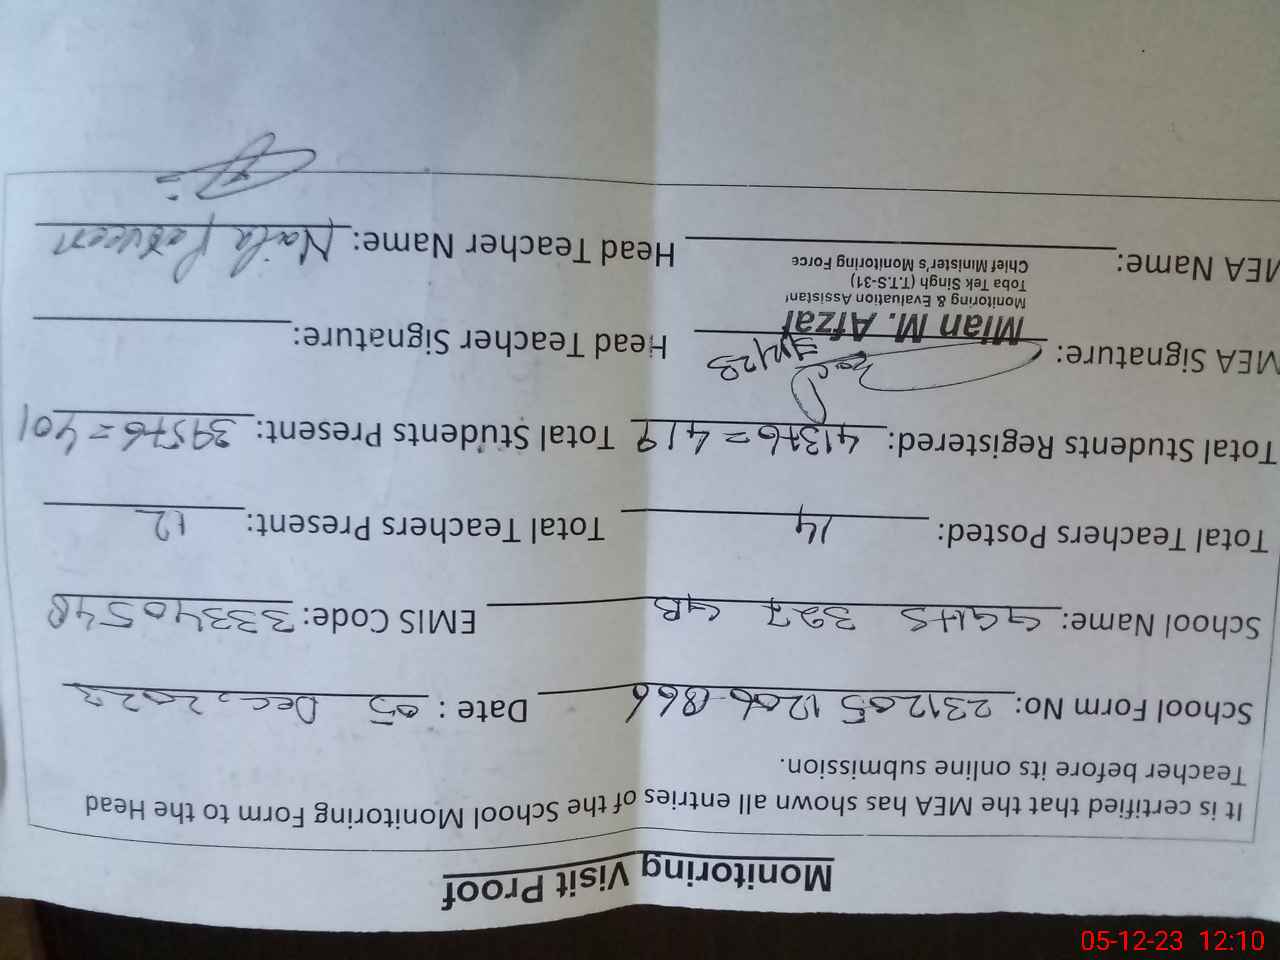 Monitoring Visit Proof
It is certified that the MEA has shown all entries of the School Monitoring Form to the Head
Teacher before its online submission.
School Form No: 231205 1206 866 Date : 05 Dec, 2023
School Name: GGHS 327 GB EMIS Code: 33340548
Total Teachers Posted: 14 Total Teachers Present: 12
Total Students Registered: 413+6=419 Total Students Present: 395+6=401
MEA Signature: Head Teacher Signature:
Mian M. Afzal
Monitoring & Evaluation Assistant
Toba Tek Singh (T.T.S-31)
Chief Minister's Monitoring Force
MEA Name: Head Teacher Name: Naila Parveen
05-12-23 12:10